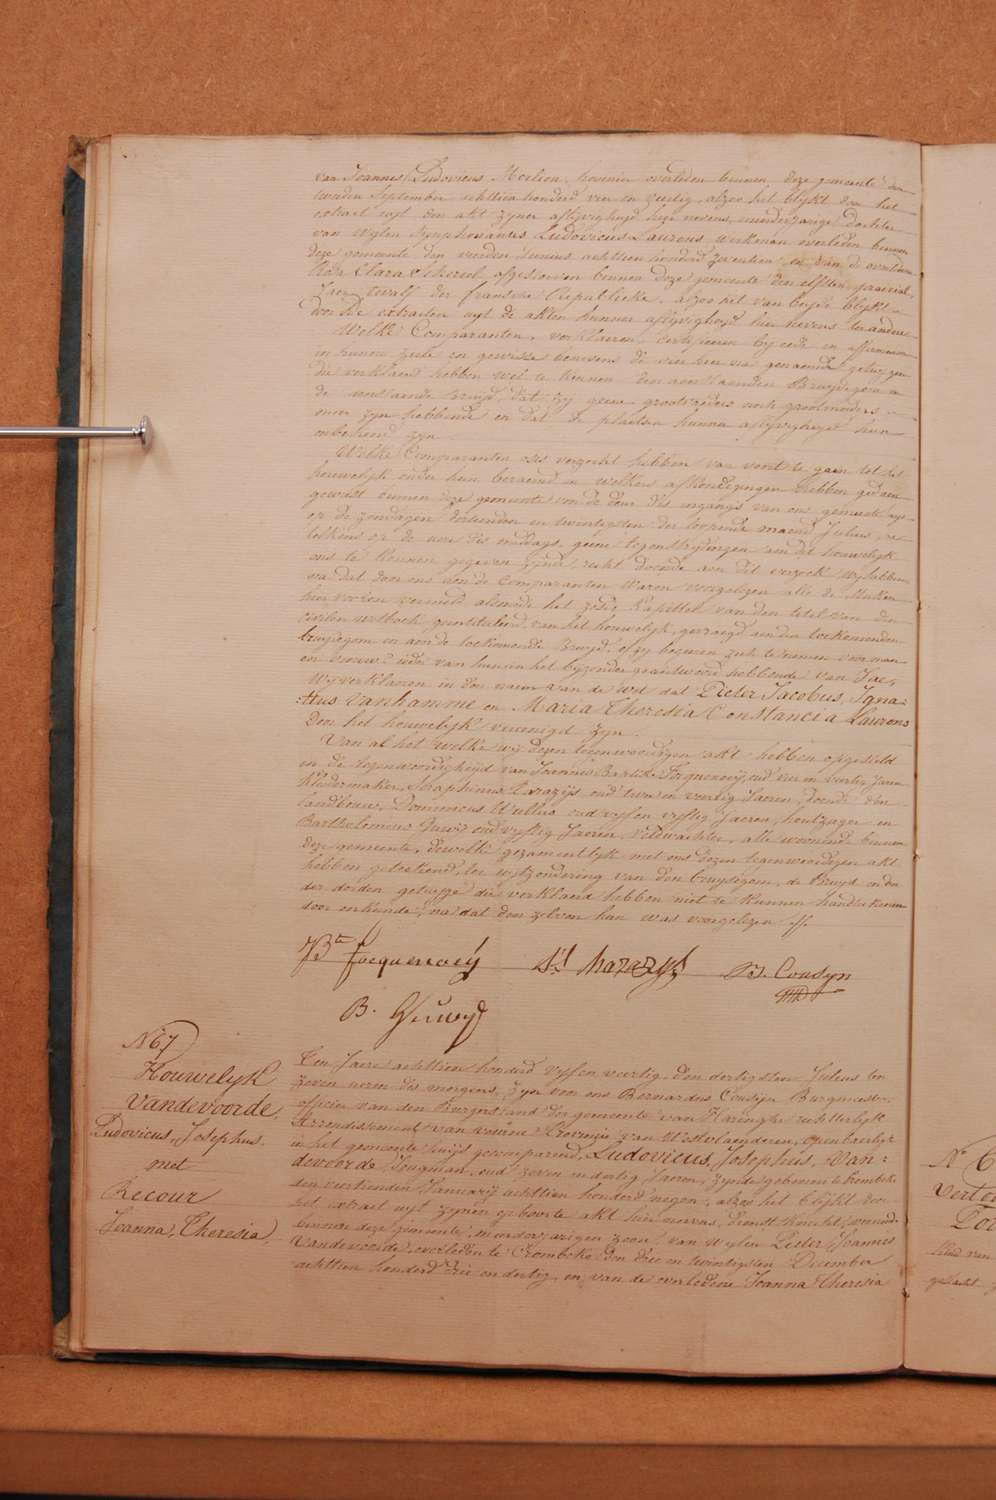 van Joannes Ludovicus Merlion, hovenier overleden binnen deze gemeente den
tweeden September achttien honderd vier en veertig, alzoo het blijkt door het
extract uyt den akt zyner aflijvigheyd hier nevens, minderjarige dochter
van wylen Symphorianus Ludovicus Laurens werkman overleden binnen
deze gemeente den vierden Junius achttien honderd zeventien en van de overledene
Clara Scherril afgestorven binnen deze gemeente den elfsten prairial,
Jaer twalf der fransche Republieke, alzoo het van beyde blykt
door de extracten uyt de akten hunner aflijvigheyd hier nevens
Welke Comparanten, verklaeren, certifieeren by eede en affirmeeren
in hunne ziele en gewisse benevens de vier hier na genaemde getuygen
die verklaert hebben wel te kennen den aenstaenden Bruydegom en
de aenstaende Bruyd, dat zy geene grootvaders noch grootmoeders
meer zyn hebbende en dat de plaetsen hunner aflijvigheyd hun
onbekend zyn.
Welke Comparanten ons verzocht hebben van voort te gaen tot het
houwelyk onder hun beraemd en welkers afkondigingen hebben gedaen
geweest binnen deze gemeente voor de deur des ingangs van ons gemeente huys
op de zondagen dertienden en twintigsten der loopende maend Julius,
telkens op de ure des middags, geene tegenstrydingen aen dit houwelyk
ons te kennen gegeven zynde, recht doende aen dit verzoek, wy hebben
na dat door ons aen de Comparanten waren voorgelezen alle de stukken
hier vooren vermeld, alsmede het zesde Kapittel van den titel van den
civilen wetboek geintituleerd, van het houwelyk, gevraegd aen den toekomenden
bruydegom en aen de toekomende Bruyd, of zy begeeren zich te nemen voor man
en vrouw: ieder van hun in het byzonder geantwoord hebbende van Jae,
Wy verklaeren in den naem van de wet dat Pieter Jacobus, Igna-
tius Vanhamme en Maria Theresia Constancia Laurens
Door het houwelyk vereenigd zyn.
Van al het welke wy dezen tegenwoordigen akt hebben opgesteld
in de tegenwoordigheyd van Joannes Baptiste Focquenoey, oud vier en veertig Jaeren
Kleedermaker, Seraphinus Marazijs oud twee en veertig Jaeren, doende den
landbouw, Dominicus Wullus oud vyf en vyftig Jaeren, houtzager en
Bartholomeus Gewy oud vyftig Jaeren, veldwachter, alle woonende binnen
deze gemeente, dewelke gezamentlyk met ons dezen tegenwoordigen akt
hebben geteekend, ter uytzondering van den bruydegom, de Bruyd en den
der derden getuyge die verklaerd hebben niet te kunnen handteekenen
door onkunde, na dat den zelven hun was voorgelezen
JBte Focquenoey Sd Marazijs B. Cousyn
N° 67
Houwelyk
Vandevoorde,
Ludovicus, Josephus.
met
Recour
Joanna, Theresia.
Ten Jaere achttien honderd vyf en veertig, den dertigsten Julius ten
zeven uren des morgens, Zyn voor ons Bernardus Cousyn Burgmeester
officier van den Burgerstand der gemeente van Haringhe rechterlyk
Arrondissement van Veurne Provincie van Westvlaenderen, openbaerlyk
in het gemeente huys gecompareerd, Ludovicus, Josephus, Van-
devoorde Jongman, oud zeven en dertig Jaeren, Zynde geboren te Crombeke
den veertienden Januarij achttien honderd negen, alzoo het blykt door
het extract uyt zynen geboorte akt hier nevens, dienstknecht, woonende
binnen deze gemeente, meerderjarigen zoon van wylen Pieter, Joannes
Vandevoorde, overleden te Crombeke den drie en twintigsten December
achttien honderd drie en dertig, en van de overledene Joanna Theresia
N° 6